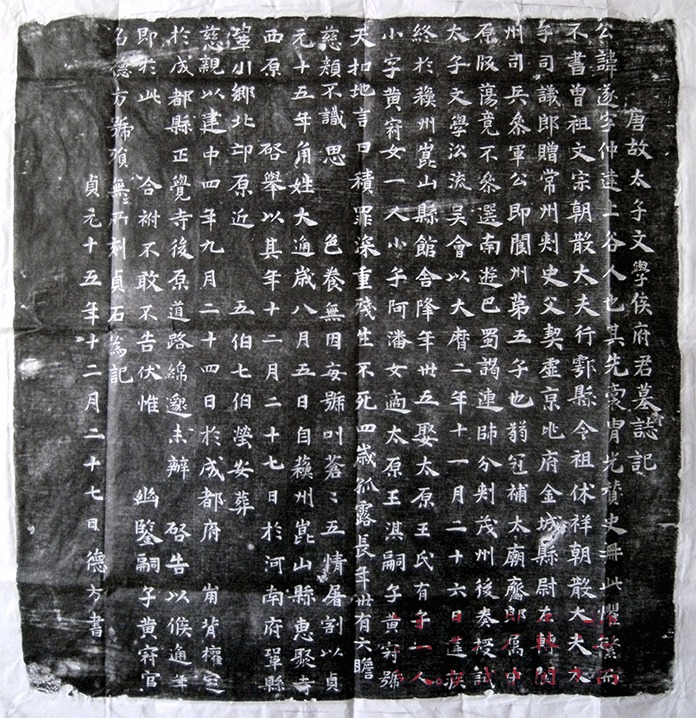 唐故太子文學侯府君墓誌記
公諱遂字仲逵上谷人也其先衮胄光贊史冊此懼繁而
不書曾祖文宗朝散大夫行鄠縣令祖休祥朝散大夫太
子司議郎贈常州刾史父契虛京兆府金城縣尉左轉閬
州司兵叅軍公即閬州第五子也弱冠補太廟齋郎屬中
原版蕩竟不叅選南遊巴蜀謁連帥分刾茂州後奏授試
太子文學㳂流吳會以大曆二年十一月二十六日遘疾
終於蘇州崑山縣館舍降年卅五娶太原王氏有子一人
小字黃窌女一人小字阿潘女適太原王淇嗣子黃窌號
天扣地言曰積罪深重殘生不死四歲孤露長年卅有六瞻
慈顏不識思 色養無因每號叫蒼〻五情屠割以貞
元十五年角姓大通歲八月五日自蘇州崑山縣惠聚寺
西原 啓舉以其年十二月二十七日於河南府鞏縣
鞏川鄉北邙原近 五伯七伯塋安葬
慈親以建中四年九月二十四日於成都府 背權窆
於成都縣正覺寺後原道路綿邈未辦 啓告以候通年
即於此 合祔不敢不告伏惟 幽鑒嗣子黃窌官
名德方號殞無所刻貞石為記
貞元十五年十二月二十七日德方書